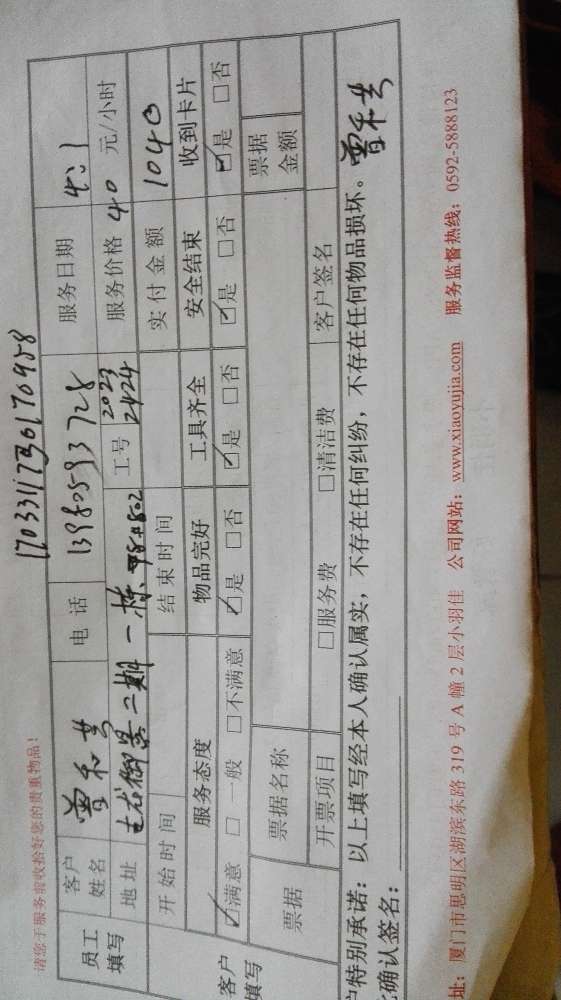 请您于服务前收拾好您的贵重物品!
员工填写 客户姓名 曾和共 电话 13980593728 服务日期 4.1
地址 二期一栋 工号 2023 2424 服务价格 40 元/小时
开始时间 结束时间 实付金额 1040
客户填写 服务态度 物品完好 工具齐全 安全结束 收到卡片
☑满意 □一般 □不满意 ☑是 □否 ☑是 □否 ☑是 □否 ☑是 □否
票据 票据名称 票据金额
开票项目 □服务费 □清洁费 客户签名
户特别承诺: 以上填写经本人确认属实, 不存在任何纠纷, 不存在任何物品损坏。曾和共
确认签名:
址: 厦门市思明区湖滨东路 319 号 A 幢 2 层小羽佳 公司网站: www.xiaoyujia.com 服务监督热线: 0592-5888123